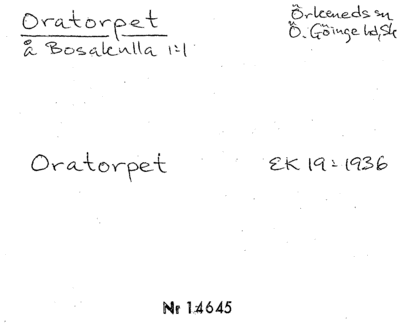 Oratorpet
å Bosakulla 1:1
Örkeneds sn
Ö. Göinge hd, Sk
Oratorpet
EK 19 = 1936
Nr 14645